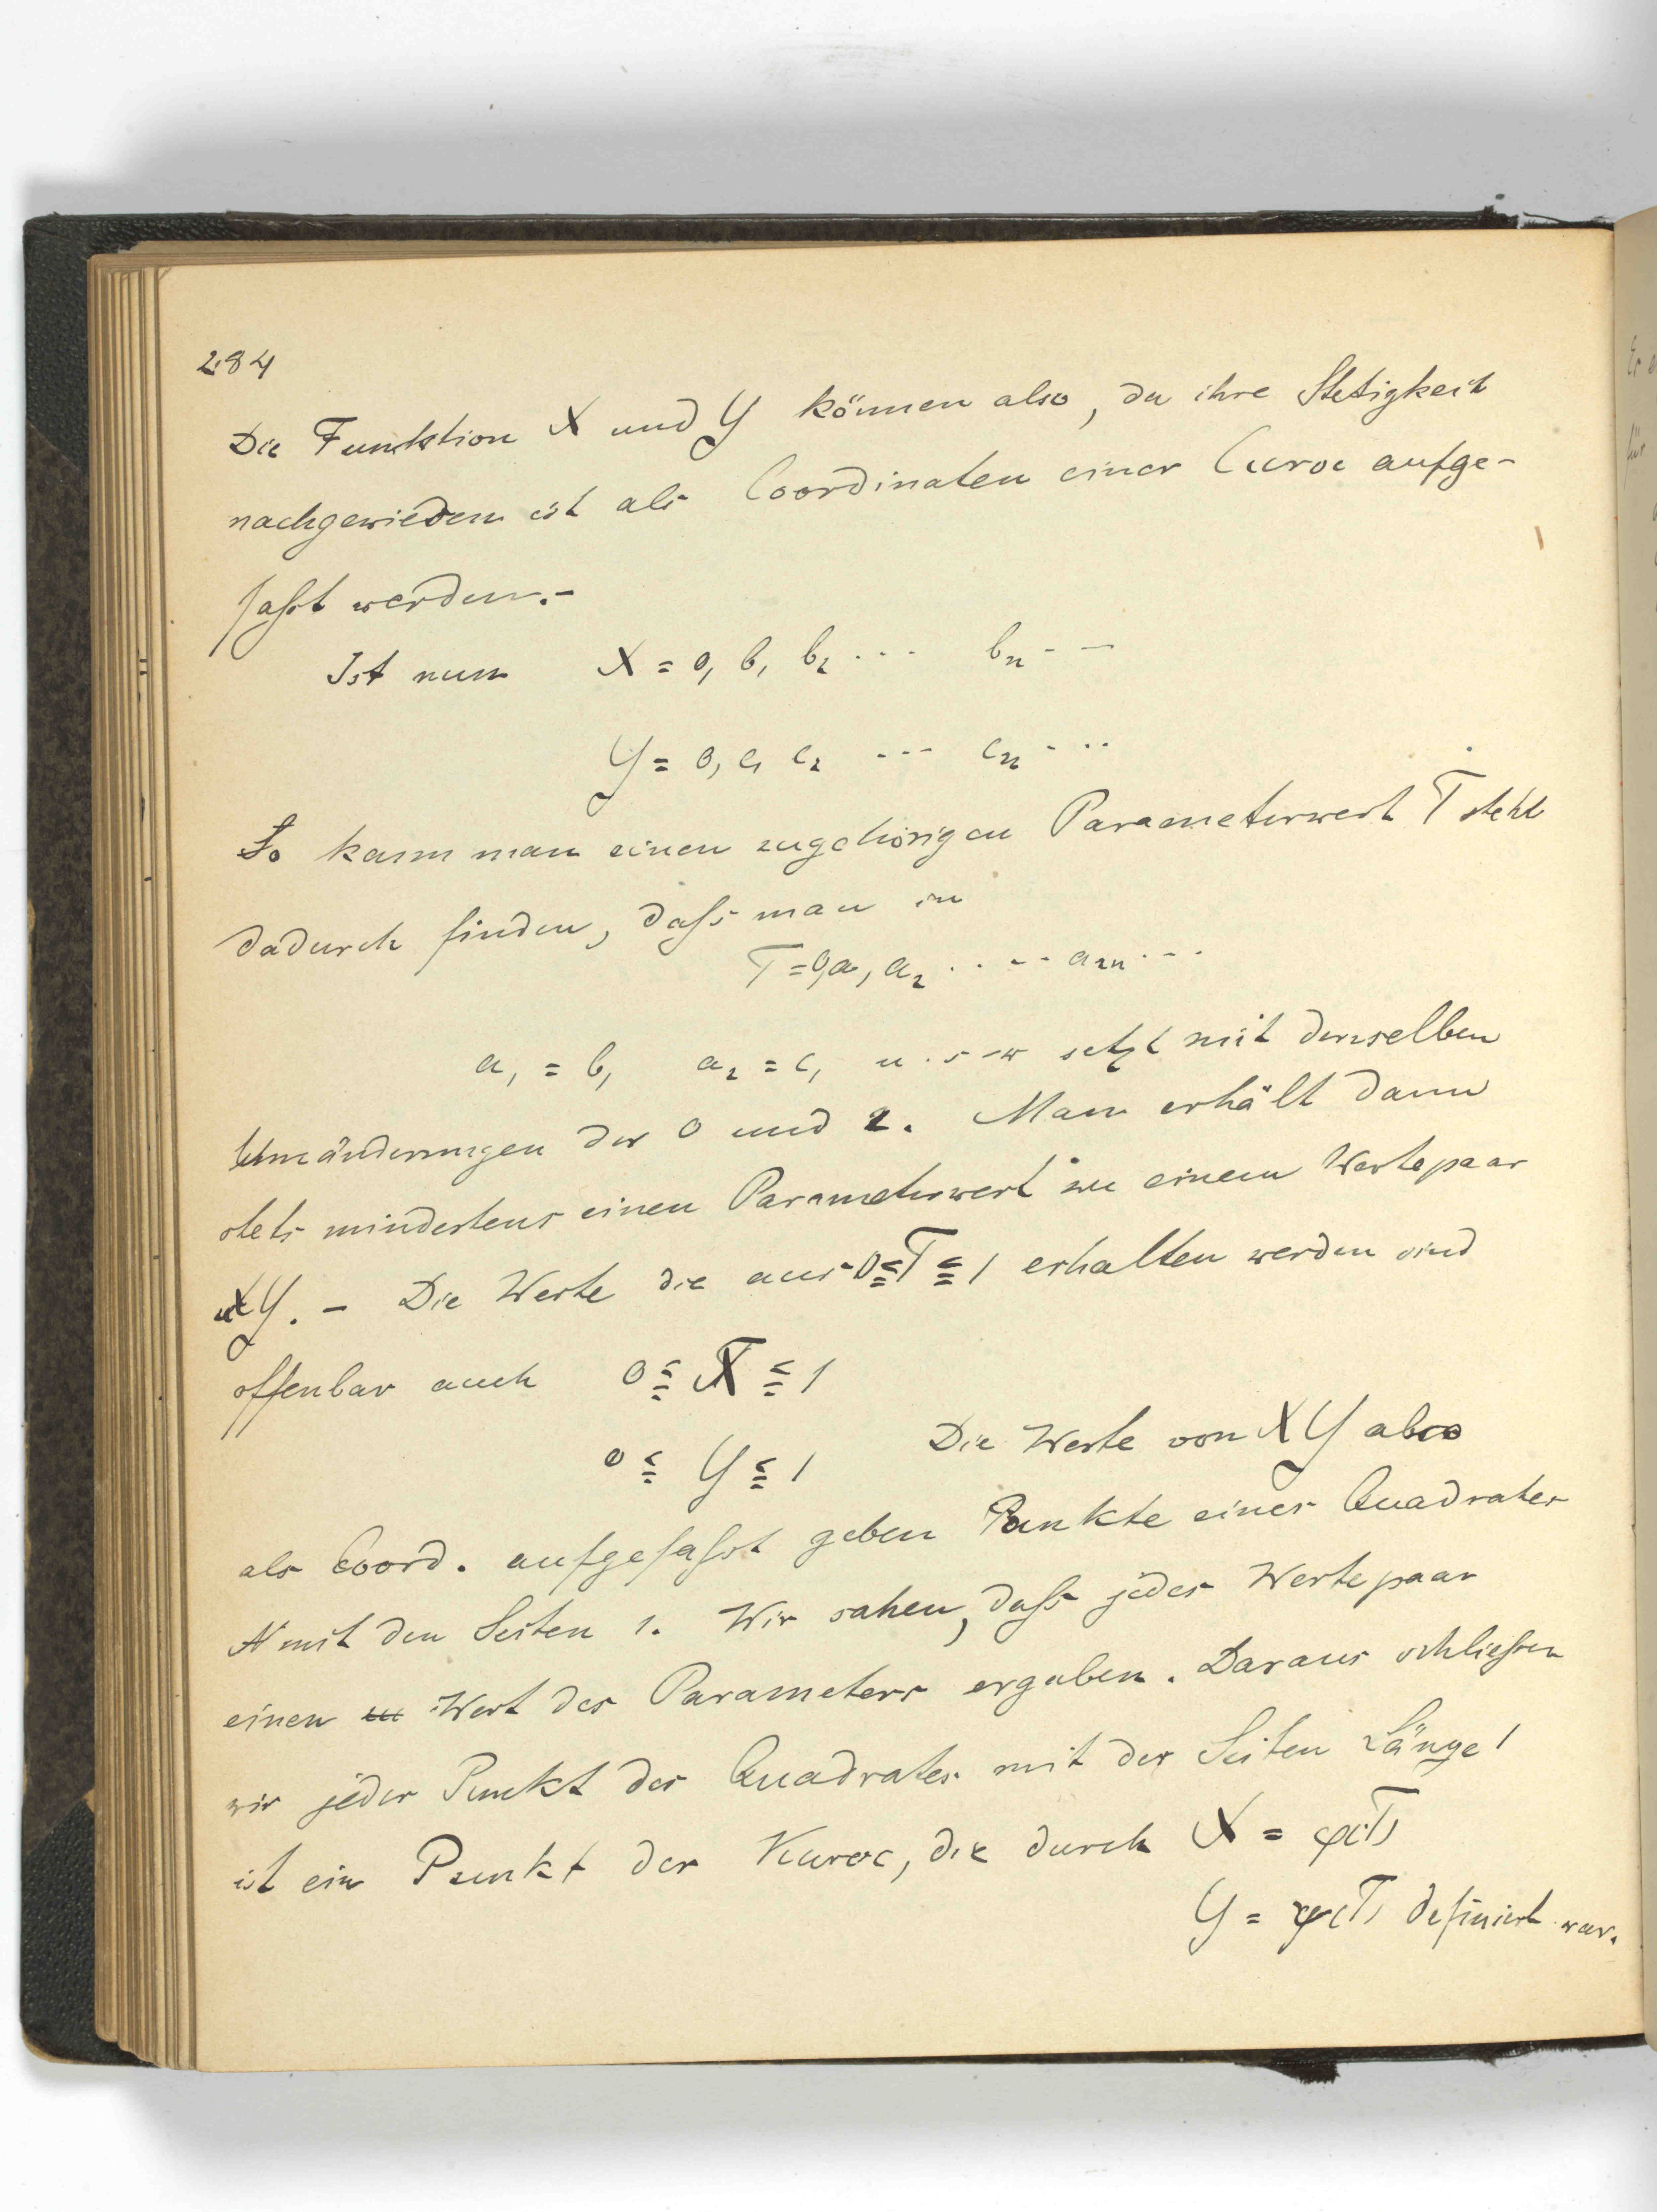 284
Die Funktion X und Y können also, da ihre Stetigkeit
nachgewiesen ist als Coordinaten einer Curve aufge-
faßt werden.-
Ist nun X = 0, b₁ b₂ ... bₙ - -
Y = 0, c₁ c₂ --- cₙ ...
So kann man einen zugehörigen Parameterwert T stets
dadurch finden, daß man in
T = 0,a₁ a₂ . . - - a₂ₙ . - .
a₁ = b₁ a₂ = c₁ u. s-w setzt mit denselben
Umänderungen der 0 und 2. Man erhält dann
stets mindestens einen Parameterwert zu einem Wertepaar
XY. - Die Werte die aus 0≦T≦1 erhalten werden sind
offenbar auch 0 ≦ X ≦ 1
0 ≦ Y ≦ 1 Die Werte von XY also
als Coord. aufgefaßt geben Punkte eines Quadrates
mit den Seiten 1. Wir sahen, daß jedes Wertepaar
einen Wert des Parameters ergaben. Daraus schließen
wir jeder Punkt des Quadrates mit der Seiten Länge 1
ist ein Punkt der Kurve, die durch X = φ(T)
Y = ψ(T) definiert war.